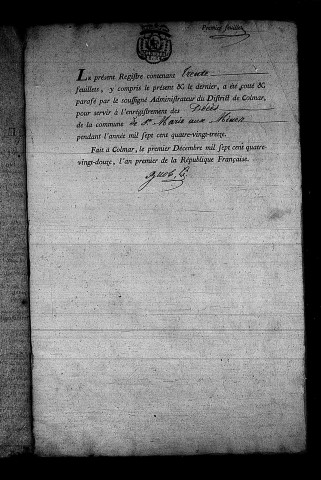 Premier feuillet
LE présent Registre contenant trente
feuillets, y compris le présent & le dernier, a été coté &
parafé par le soussigné Administrateur du District de Colmar,
pour servir à l'enregistrement des Décès
de la commune de Ste Marie aux Mines
pendant l'année mil sept cent quatre-vingt-treize.
Fait à Colmar, le premier Décembre mil sept cent quatre-
vingt-douze, l'an premier de la République Française.